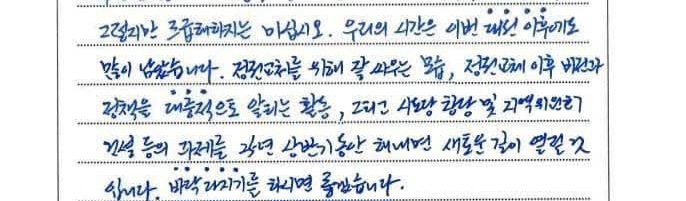 그렇지만 조급해하지는 마십시오. 우리의 시간은 이번 대선 이후에도
많이 남았습니다. 정권교체를 위해 잘 싸우는 모습, 정권교체 이후 비전과
정책을 대중적으로 알리는 활동, 그리고 시도당 창당 및 지역위원회
건설 등의 과제를 25년 상반기동안 해내면 새로운 길이 열릴 것
입니다. 바닥 다지기를 하시면 좋겠습니다.